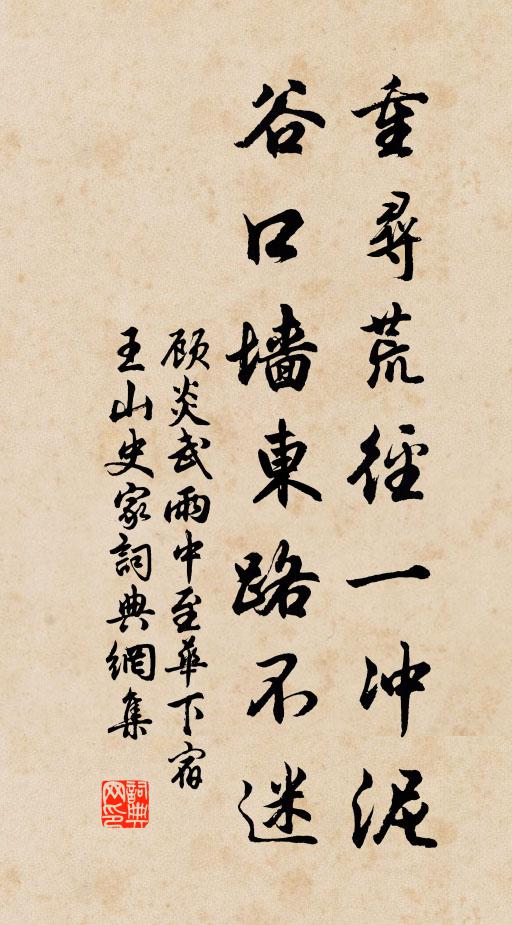 重尋荒徑一冲泥
谷口墻東路不迷
顾炎武雨中至華下宿
王山史家詞典網集
詞典网印